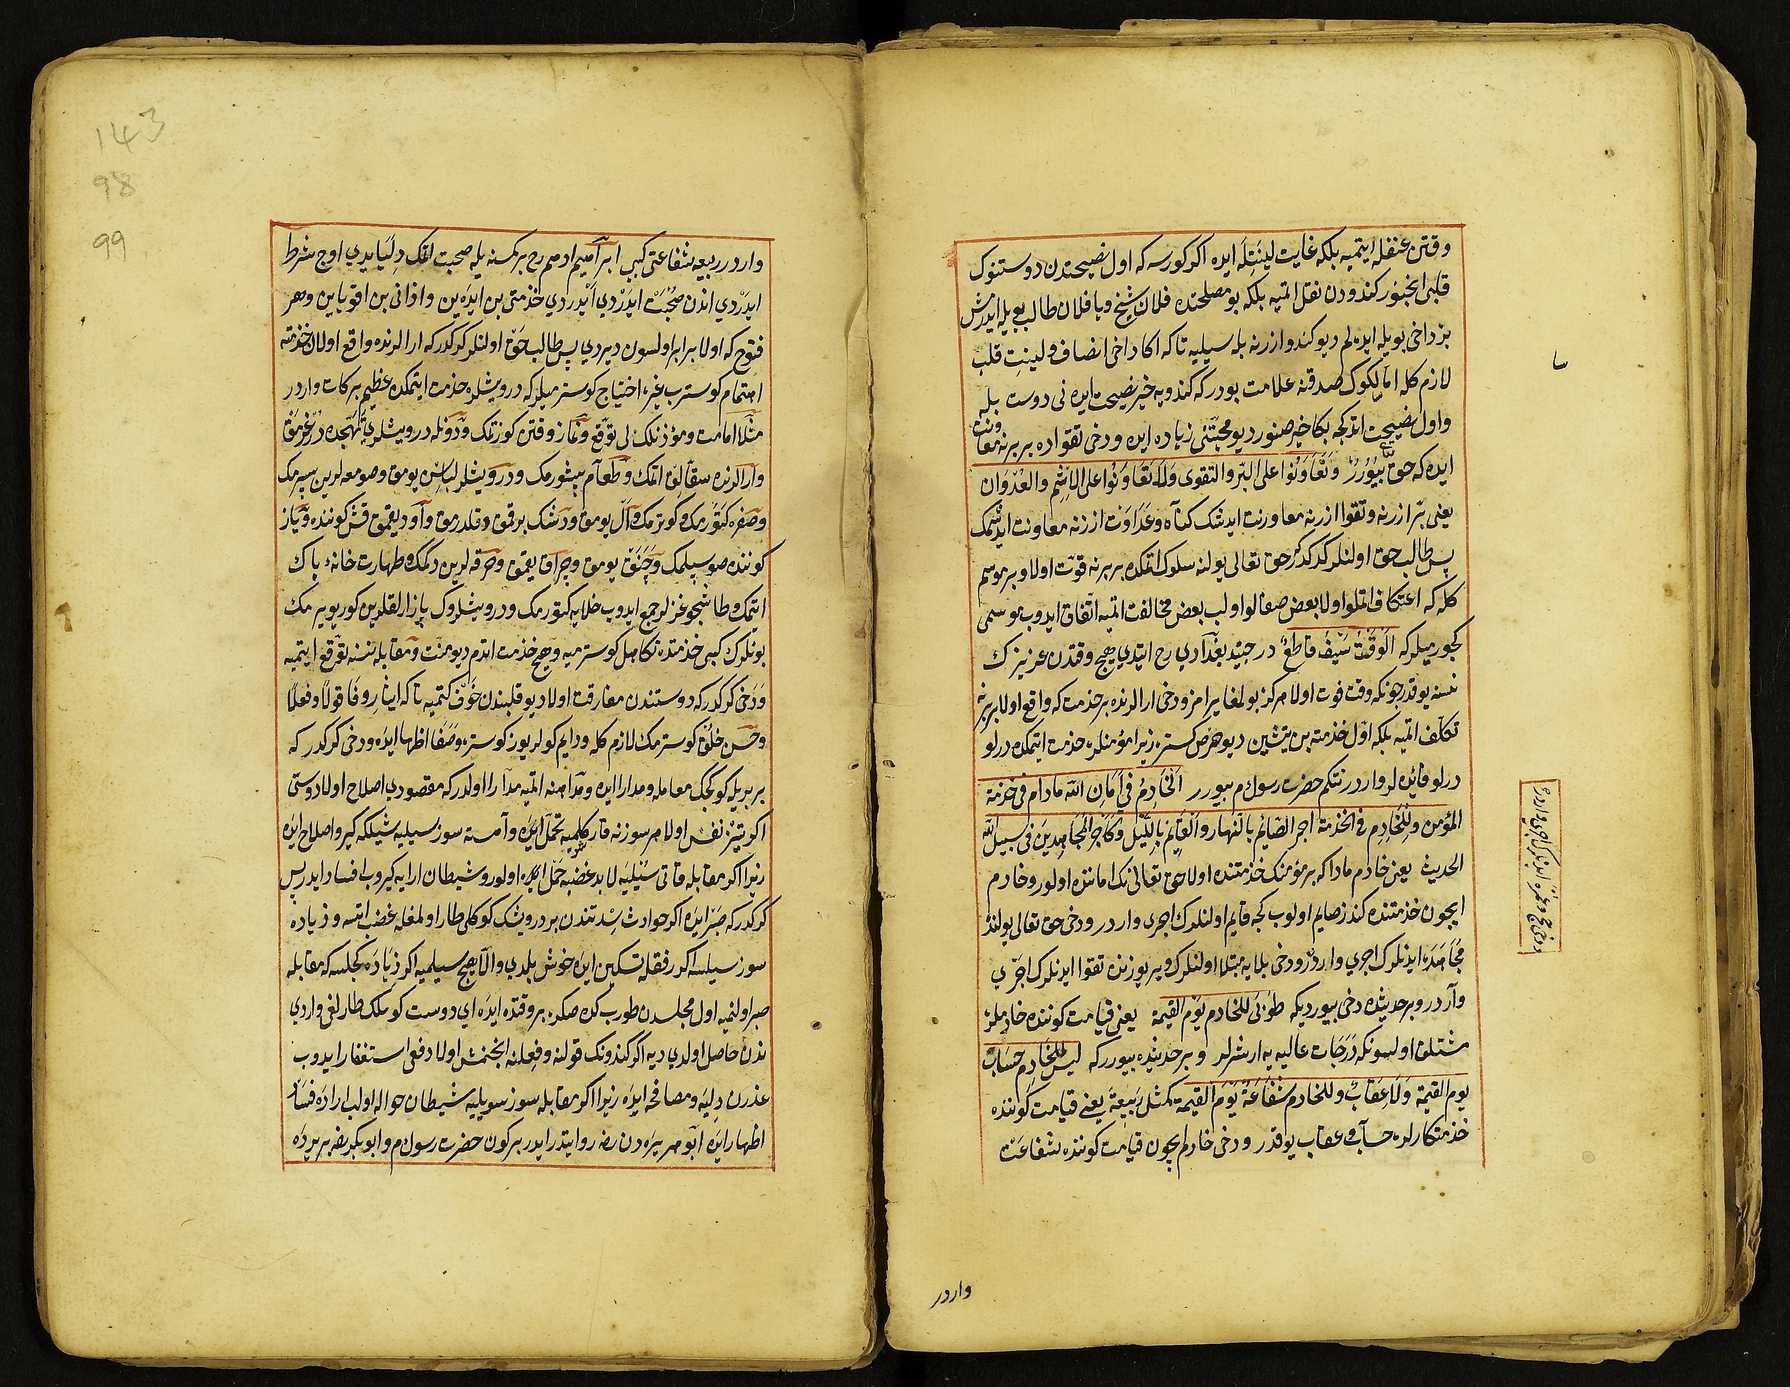 وقتن عنفله ایتمیه بلکه غایت لینتله ایده اکر کورسه که اول نصیحتدن دوستنوك
قلبی انجنور کندودن نقل اتمیه بلکه بو مصلحتده فلان شیخ ویا فلان طالب بویله ایدرمش
بز داخی بویله ایده لم دیو کندو ازرنه بله سیلیه تاکه اکا داخی انصاف ولینت قلب
لازم کله اما لکوك صدقنه علامت بودر که کندویه خیر نصیحت ایده نی دوست بله
واول نصیحت اتدکجه بکا خیر صنور دیو محبتنی زیاده ایده ودخی تقواده بر برنه معاونت
ایده که حق تع بیورر وتعاونوا علی البر والتقوی ولا تعاونوا علی الاثم والعدوان
یعنی بر ازرنه وتقوا ازرنه معاونت ایدشك کناه وعداوت ازرنه معاونت ایدشمك
پس طالب حق اولنلر کرکدر حق تعالی یولنه سلوك اتمکده بر برنه قوت اولا وبر موسم
کله که اعتکاف اتملو اولا بعض صفالو اولب بعض مخالفت اتمیه اتفاق ایدوب موسمی
کجورمیلر که الوقت سیف قاطع در جنید بغدادی رح ایتدی هیج وقتدن عزیزك
نسنه یوقدر جونکه وقت فوت اولا هرکز بولمغا یرامز ودخی ارالرنده بر خدمت که واقع اولا بر برنه
تکلف اتمیه بلکه اول خدمته بن یتشین دیو حرص کستره زیرا مؤمنلره خدمت ایتمکده درلو
درلو فائده لر واردر نتکم حضرت رسول م بیورر الخادم فی امان الله مادام فی خدمة
المؤمن وللخادم فی الخدمة اجر الصائم بالنهار والقایم باللیل وکاجر المجاهدین فی سبیل الله
الحدیث یعنی خادم ماداکه بر مؤمنك خدمتنده اولا حق تعالی نك اماننده اولور وخادم
ایجون خدمتنده کندز صایم اولوب کجه قایم اولنلرك اجری واردر ودخی حق تعالی یولنده
مجاهده ایدنلرك اجری واردر ودخی بلایه مبتلا اولنلرك ویر یوزنده تقوا ایدنلرك اجری
واردر وبر حدیثده دخی بیوردیکه طوبی للخادم یوم القیمة یعنی قیامت کوننده خادملر
مشتلق اولسونکه درجات عالیه یه ارشرلر وبر حدیثده بیوررکه لیس للخادم حساب
یوم القیمة ولا عقاب وللخادم شفاعة یوم القیمة کمثل ربیعة یعنی قیامت کوننده
خدمتکارلره حساب وعقاب یوقدر ودخی خادم ایجون قیامت کوننده شفاعت
واردر
واردر ربیعه شفاعتی کبی ابراهیم ادهم رح بر کمسنه یله صحبت اتمك دلیایدی اوج شرط
ایدردی اندن صحبت ایدردی ایدردی خدمتی بن ایده ین واذانی بن اوقویاین وهر
فتوح که اولا برابر اولسون دیردی پس طالب حق اولنلر کرکدر که ارالرنده واقع اولان خدمته
اهتمام کوستره احتیاج کوسترمیلر که درویشلره خدمت ایتمکده عظیم برکات واردر
مثلا امامت ومؤذنلك توقع ونماز وقتن کوزتمك ودونله درویشلری تهجده درغرمق
وارالرنده سقالق اتمك وطعام پیشورمك ودرویشلر لباسن یومق وصومعه لرین سپرمك
وصفره کتورمك وکوترمك وال یومق ودشك براقمق دقلدرمق واود یقمق قش کوننده ویاز
کوننده صو سپلمك وچنق یومق وچراق یقمق وخرقه لرین دکمك وطهارت خانه پاك
ایتمك وطاشجوغز لر جمع ایدوب خلایه کتورمك ودرویشلروك پازارلقلرین کوریویرمك
بونلرك کبی خدمتده تکاهل کوسترمیه وهیج خدمت اتدم دیو منت ومقابله نسنه توقع ایتمیه
ودخی کرکدر که دوستندن مفارقت اولاد یو قلبندن خوف کتمیه تاکه ایثار وفا قولا وفعلا
وحسن خلق کوسترمك لازم کله ودایم کولر یوز کوستره وصفا اظهار ایده ودخی کرکدر که
بر بریله کوکجك معامله ومدارا ایده ومداهنه اتمیه مدارا اولدر که مقصودی اصلاح اولا دوستی
اکر تیز نفس اولا هر سوزنه قارکلمیه تحمل ایده واهسته سوز سیلیه شیلکه کیرو اصلاح ایده
زیرا اکر مقابله قاتی سیلیه لابد غضبه حمل اتمش اولور وشیطان ارایه کیروب افساد ایدر پس
کرکدر که صبر ایده اکر حوادث شدتندن بر درویشك کوکلی طار اولمغله غضب ایتسه وزیاده
سوز سیلسه اکر رفقله تسکین ایده خوش بلدی والا هیج سیلمیه اکر زیاده کجلسه که مقابله
صبر اولنمیه اول مجلسدن طورب کده صکره بر وقتده ایده ای دوست کوملك طارلغی واردی
ندن حاصل اولدی دیه اکر کندونك قولنه وفعلنه انجنمش اولا دفعی استغفار ایدوب
عذرن دلیه ومصافحه ایده زیرا اکر مقابله سوز سویلیه شیطان حواله اولب اراده فساد
اظهار ایده ابو هریره دن رضه روایتدر ایدر بر کون حضرت رسول م وابو بکر رضه بر یرده
143
98
99